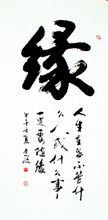 缘
人生在世不管什
么人或什么事
一定要随缘
甲午